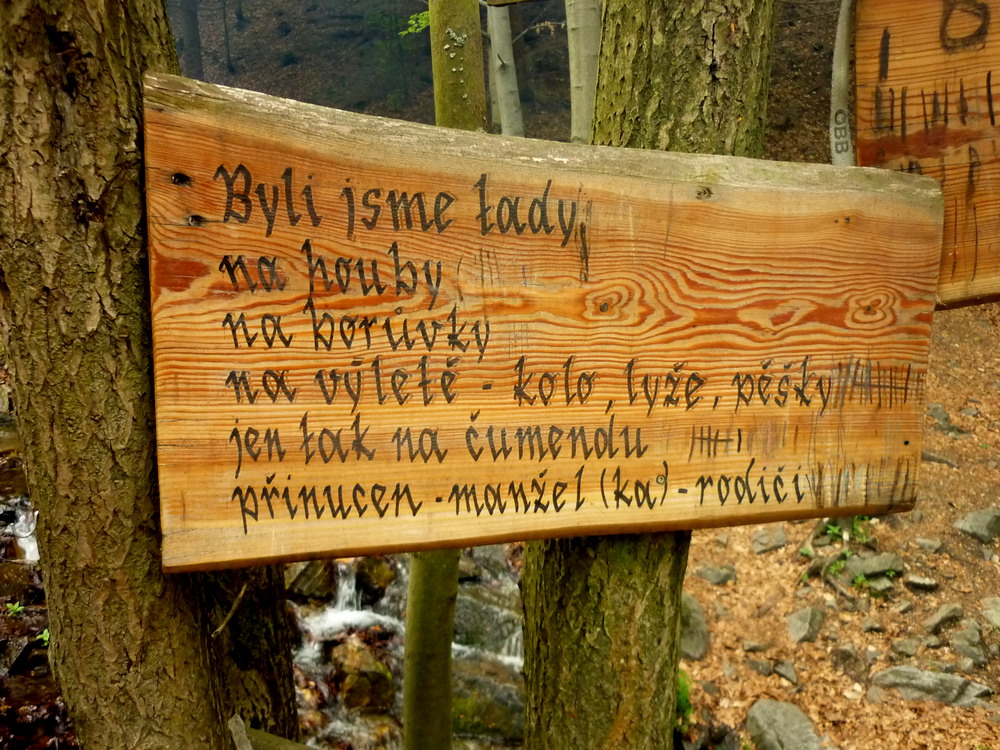 Byli jsme tady
na houby
na borůvky
na výletě - kolo, lyže, pěšky
jen tak na čumendu
přinucen - manžel (ka) - rodiči
CBB